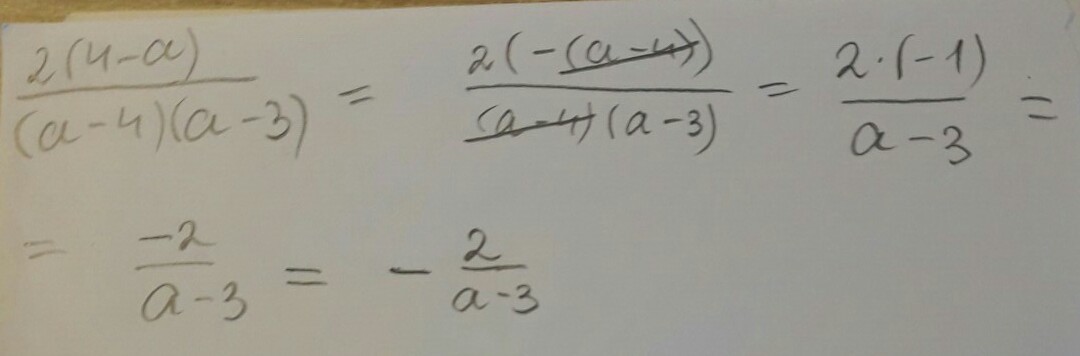 \frac{2(4-a)}{(a-4)(a-3)} = \frac{2(-(a-4))}{(a-4)(a-3)} = \frac{2·(-1)}{a-3} =
= \frac{-2}{a-3} = -\frac{2}{a-3}